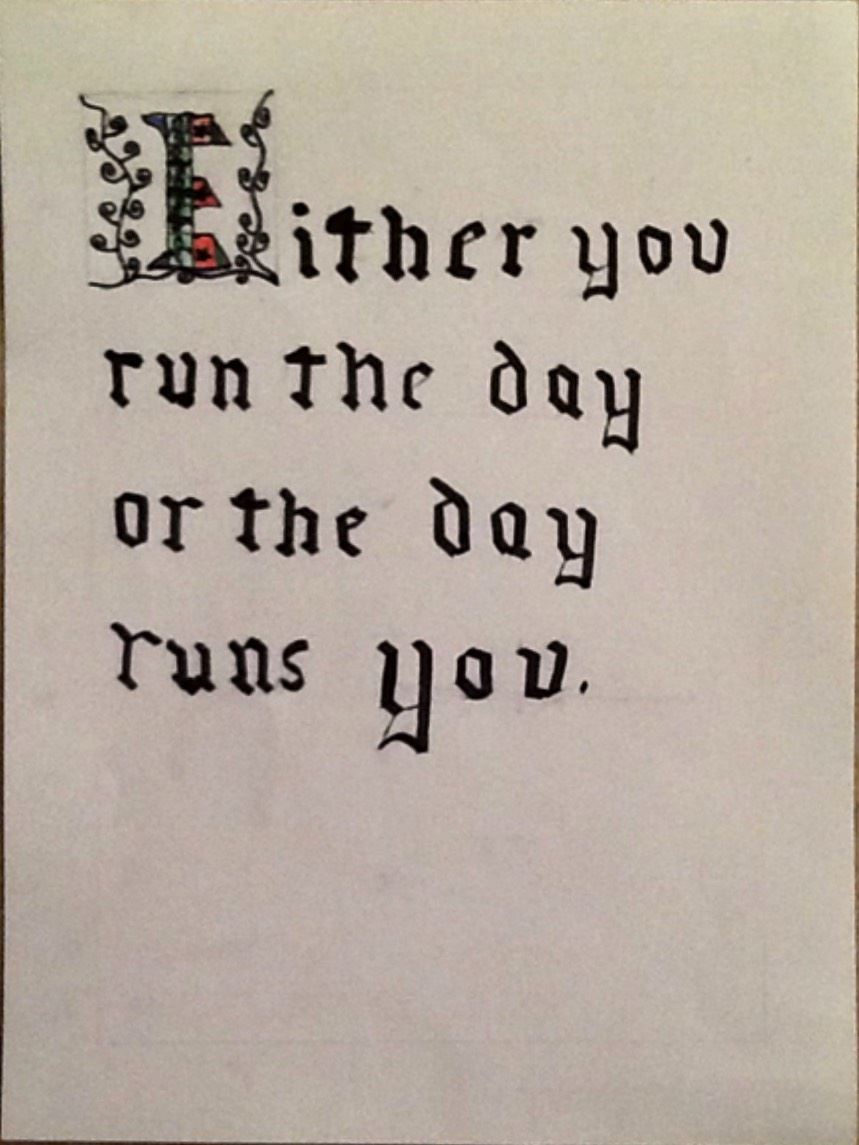 Either you
run the day
or the day
runs you.